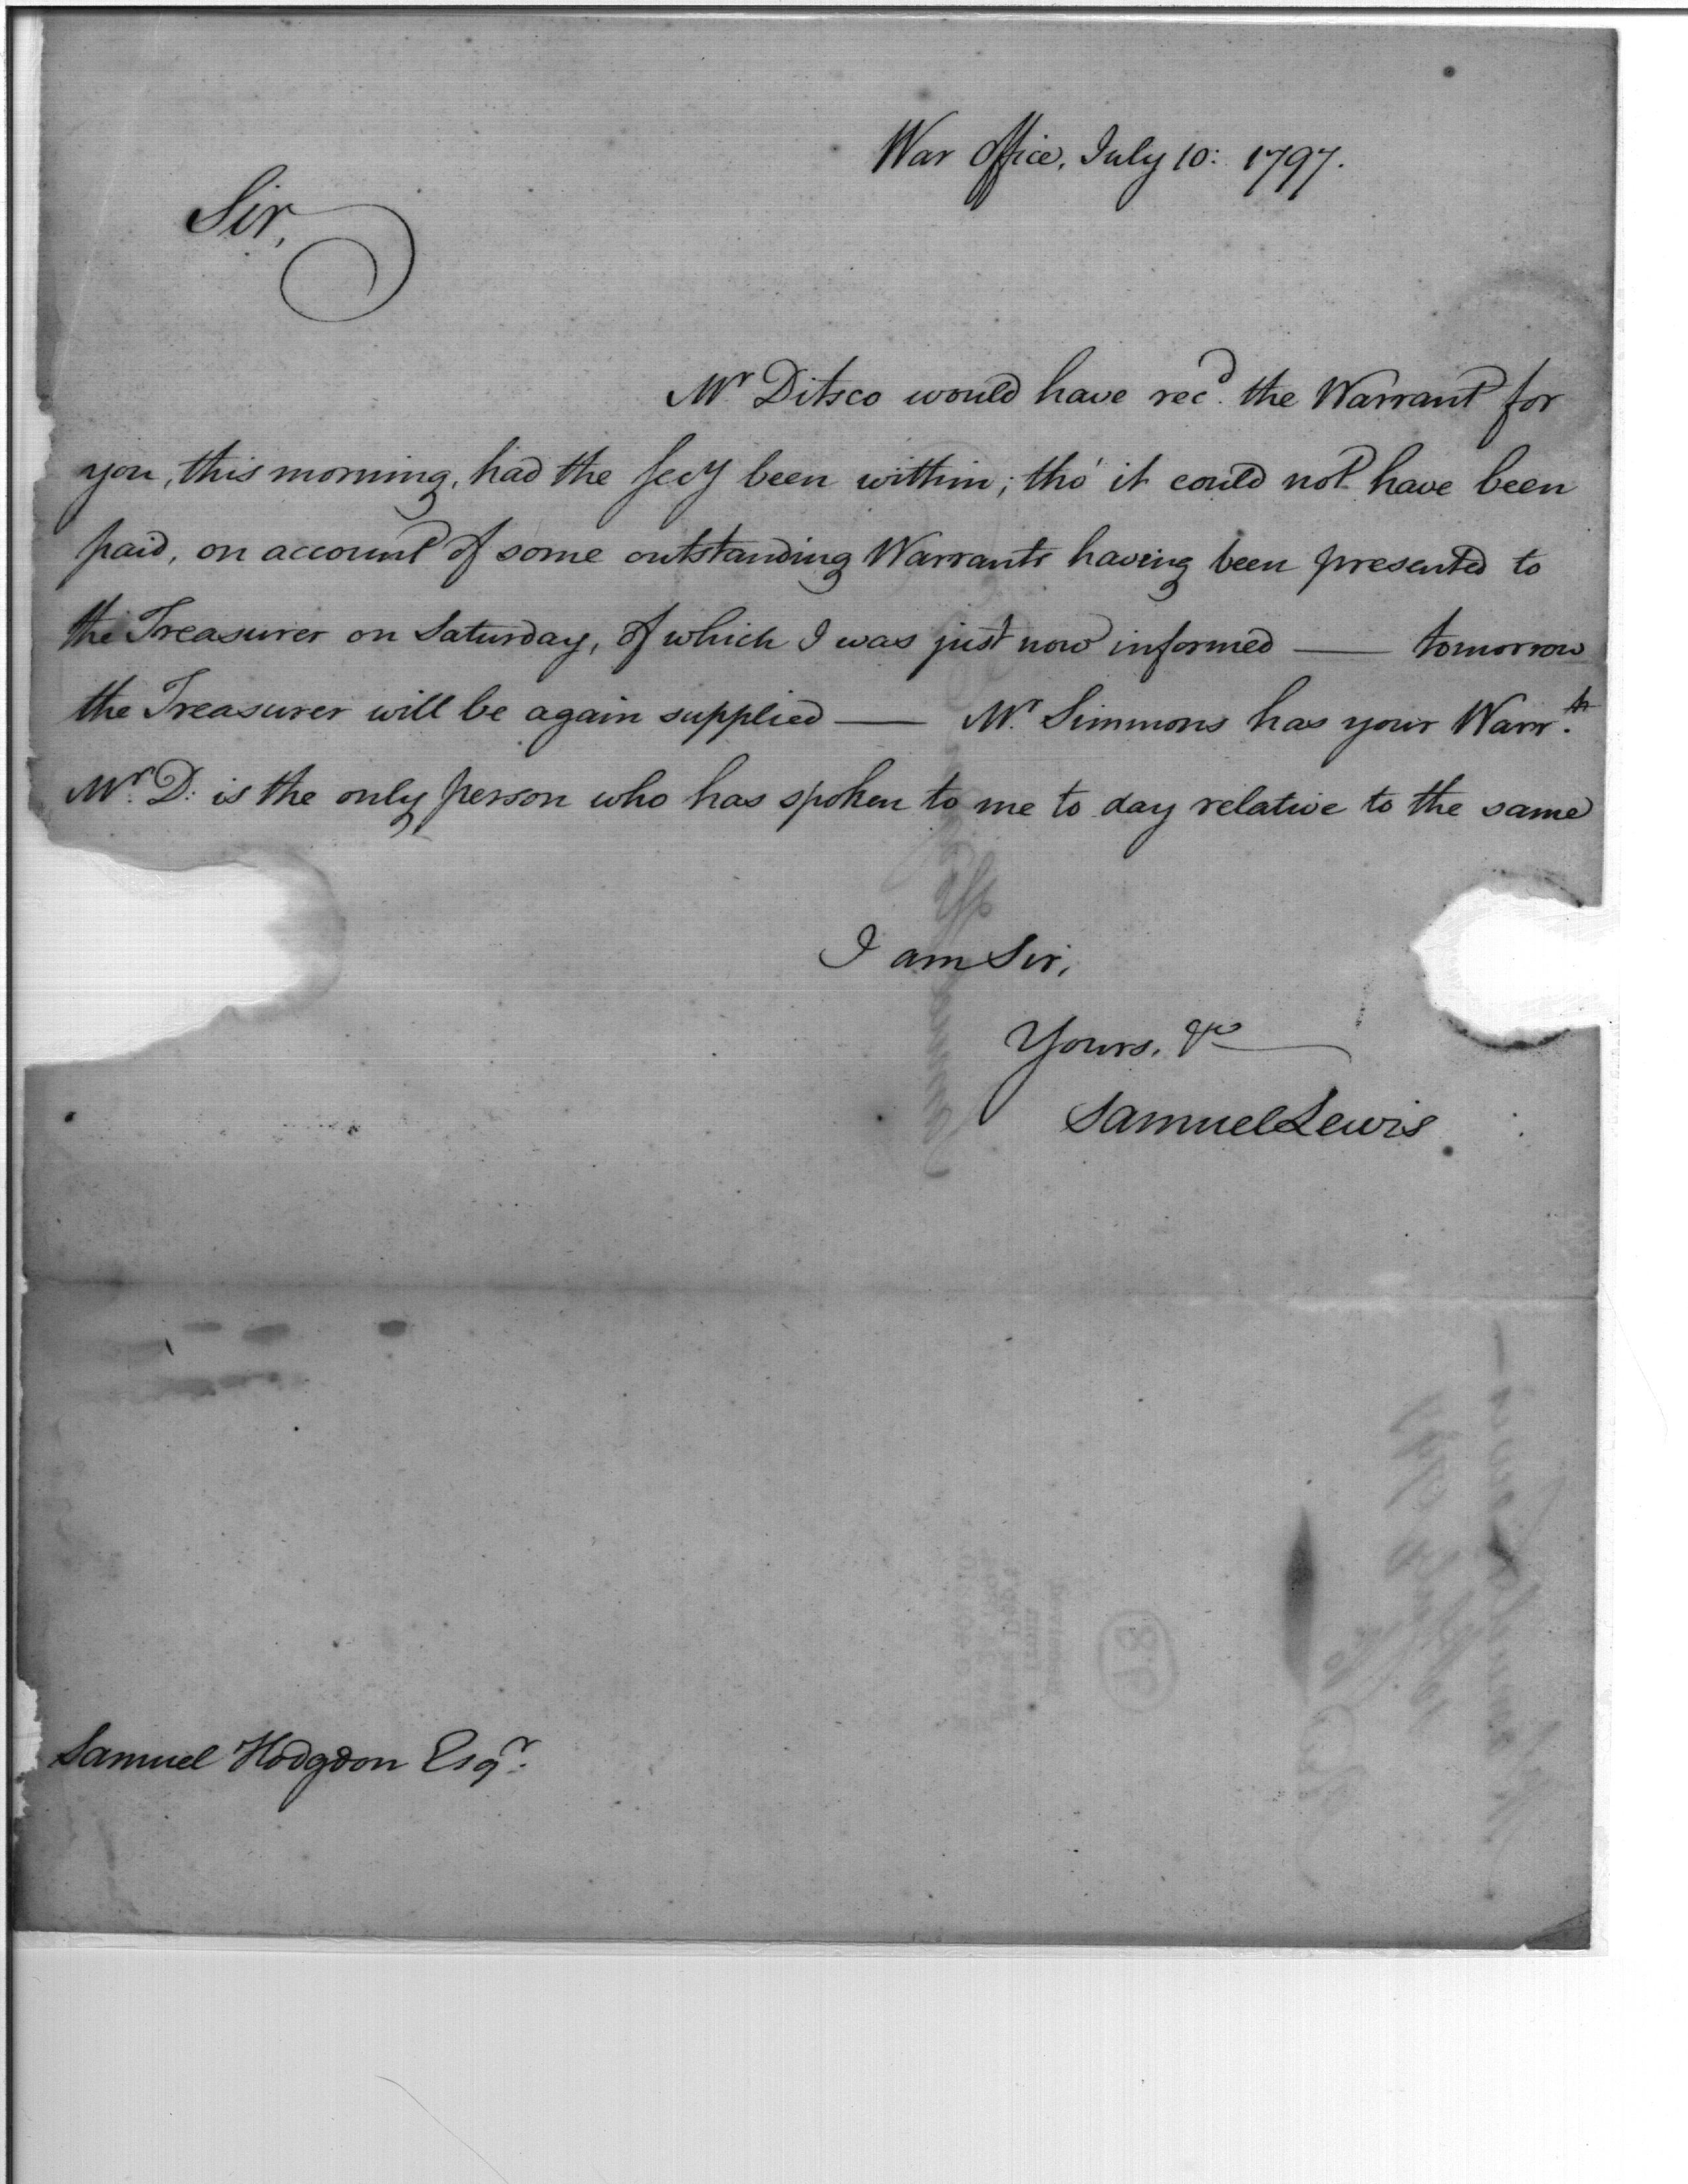 War Office, July 10: 1797.
Sir,
Mr Ditsco would have rec'd. the Warrant for
you, this morning, had the Secy been within; tho' it could not have been
paid, on account of some outstanding Warrants having been presented to
the Treasurer on Saturday, of which I was just now informed — tomorrow
the Treasurer will be again supplied — Mr. Simmons has your Warr.ts
Mr. D: is the only person who has spoken to me to day relative to the same
I am Sir,
Yours, &c
Samuel Lewis
Samuel Hodgdon Esqr.